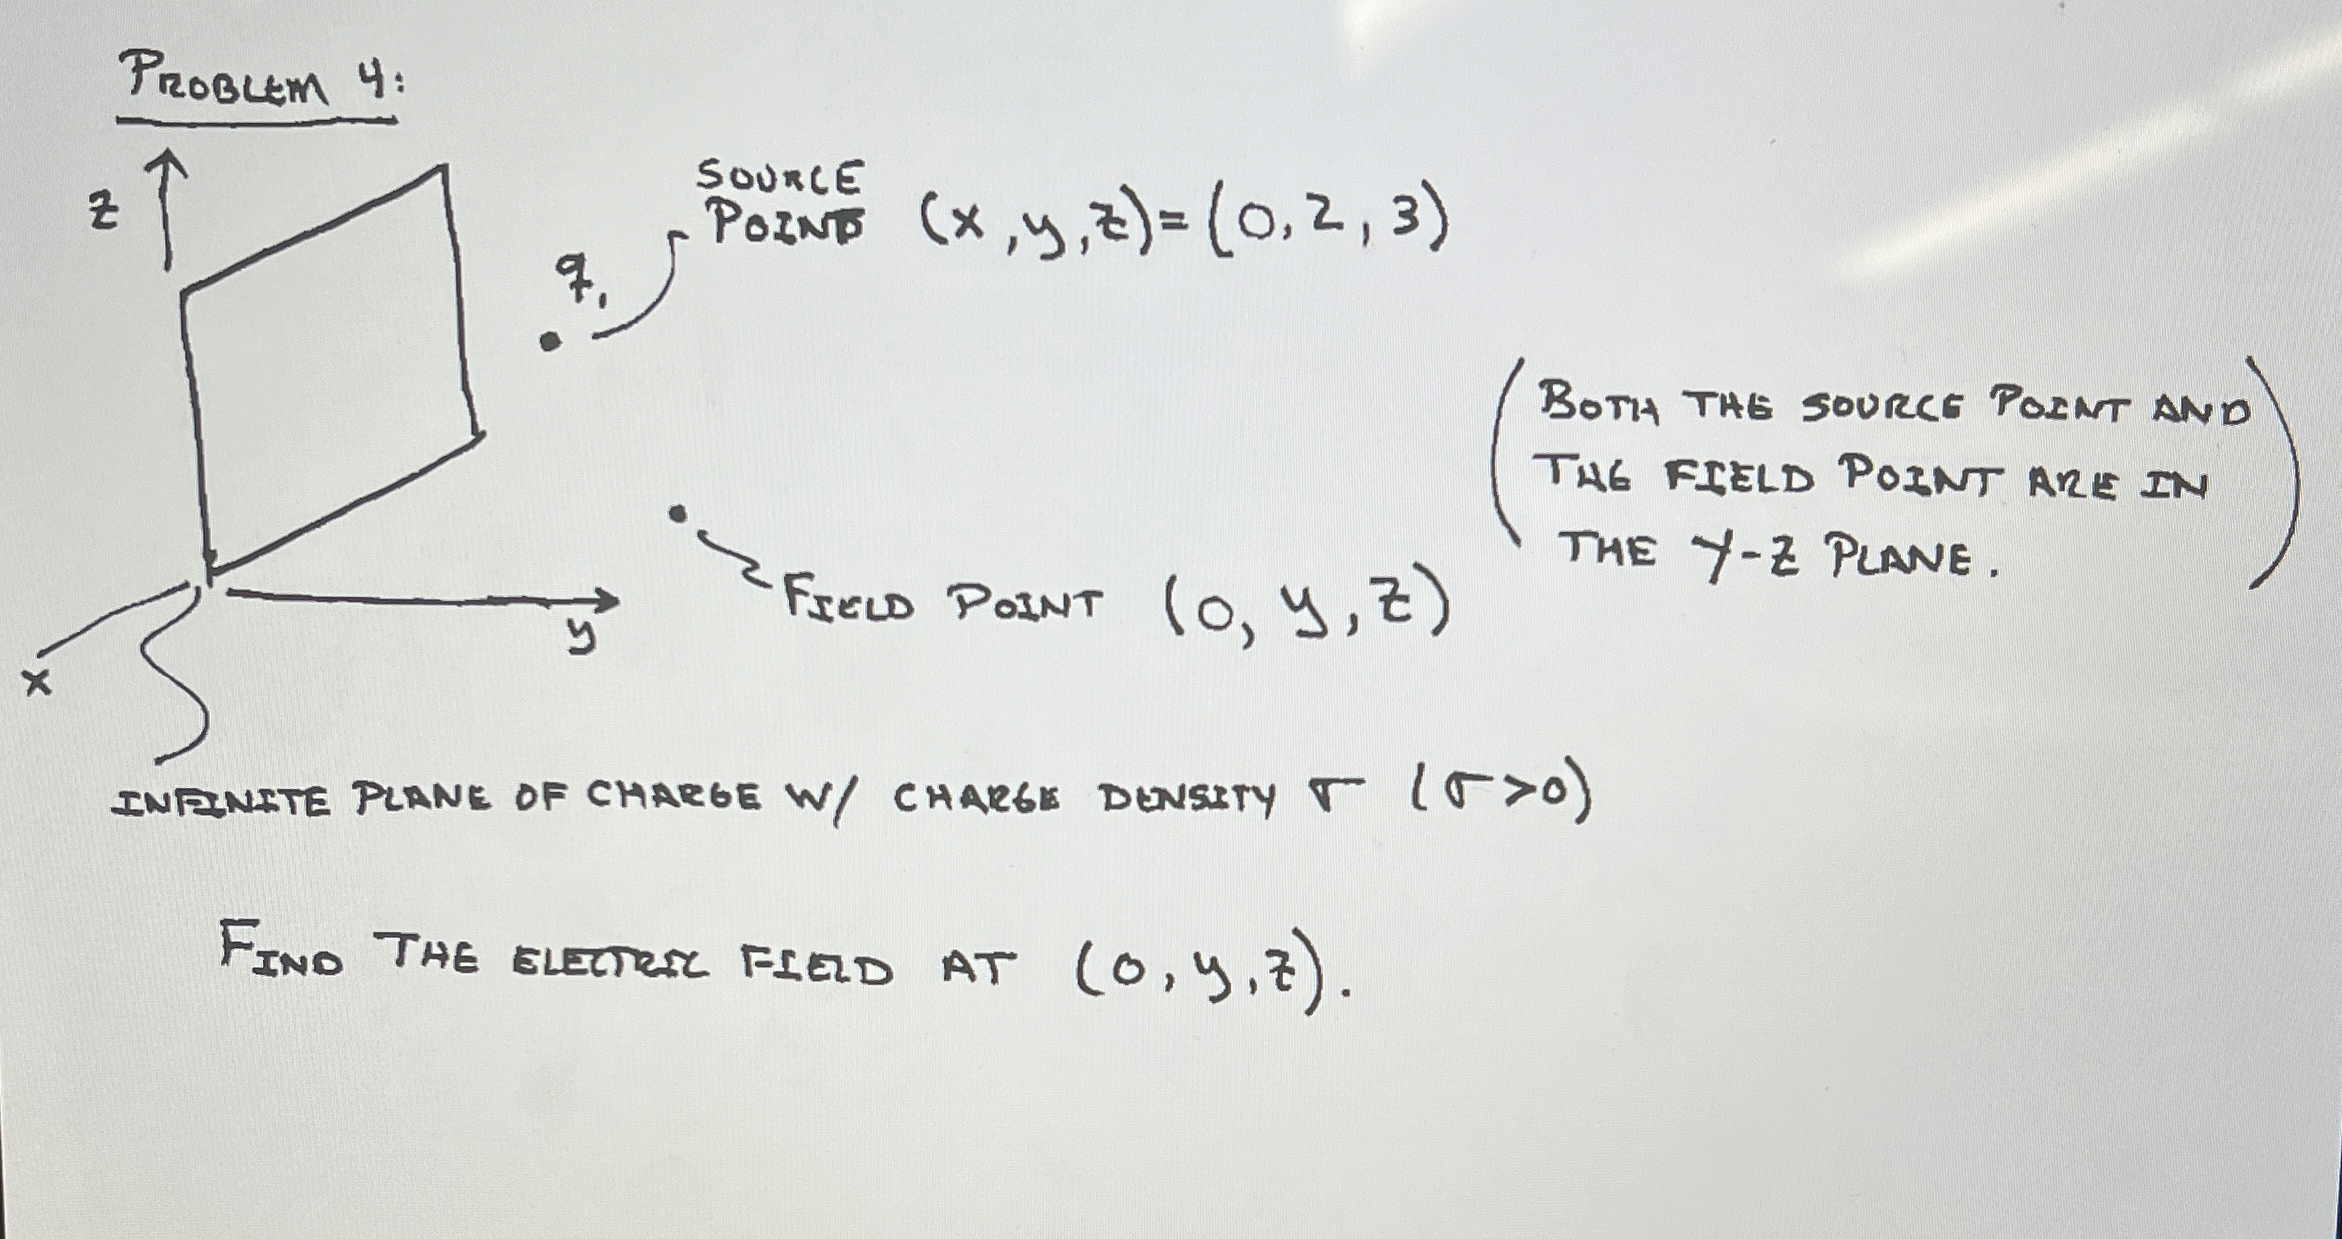 PROBLEM 4:
z
SOURCE
POINT (x, y, z) = (0, 2, 3)
q₁
(BOTH THE SOURCE POINT AND
THE FIELD POINT ARE IN
THE Y-Z PLANE.)
FIELD POINT (0, y, z)
y
x
INFINITE PLANE OF CHARGE W/ CHARGE DENSITY σ (σ>0)
FIND THE ELECTRIC FIELD AT (0, y, z).